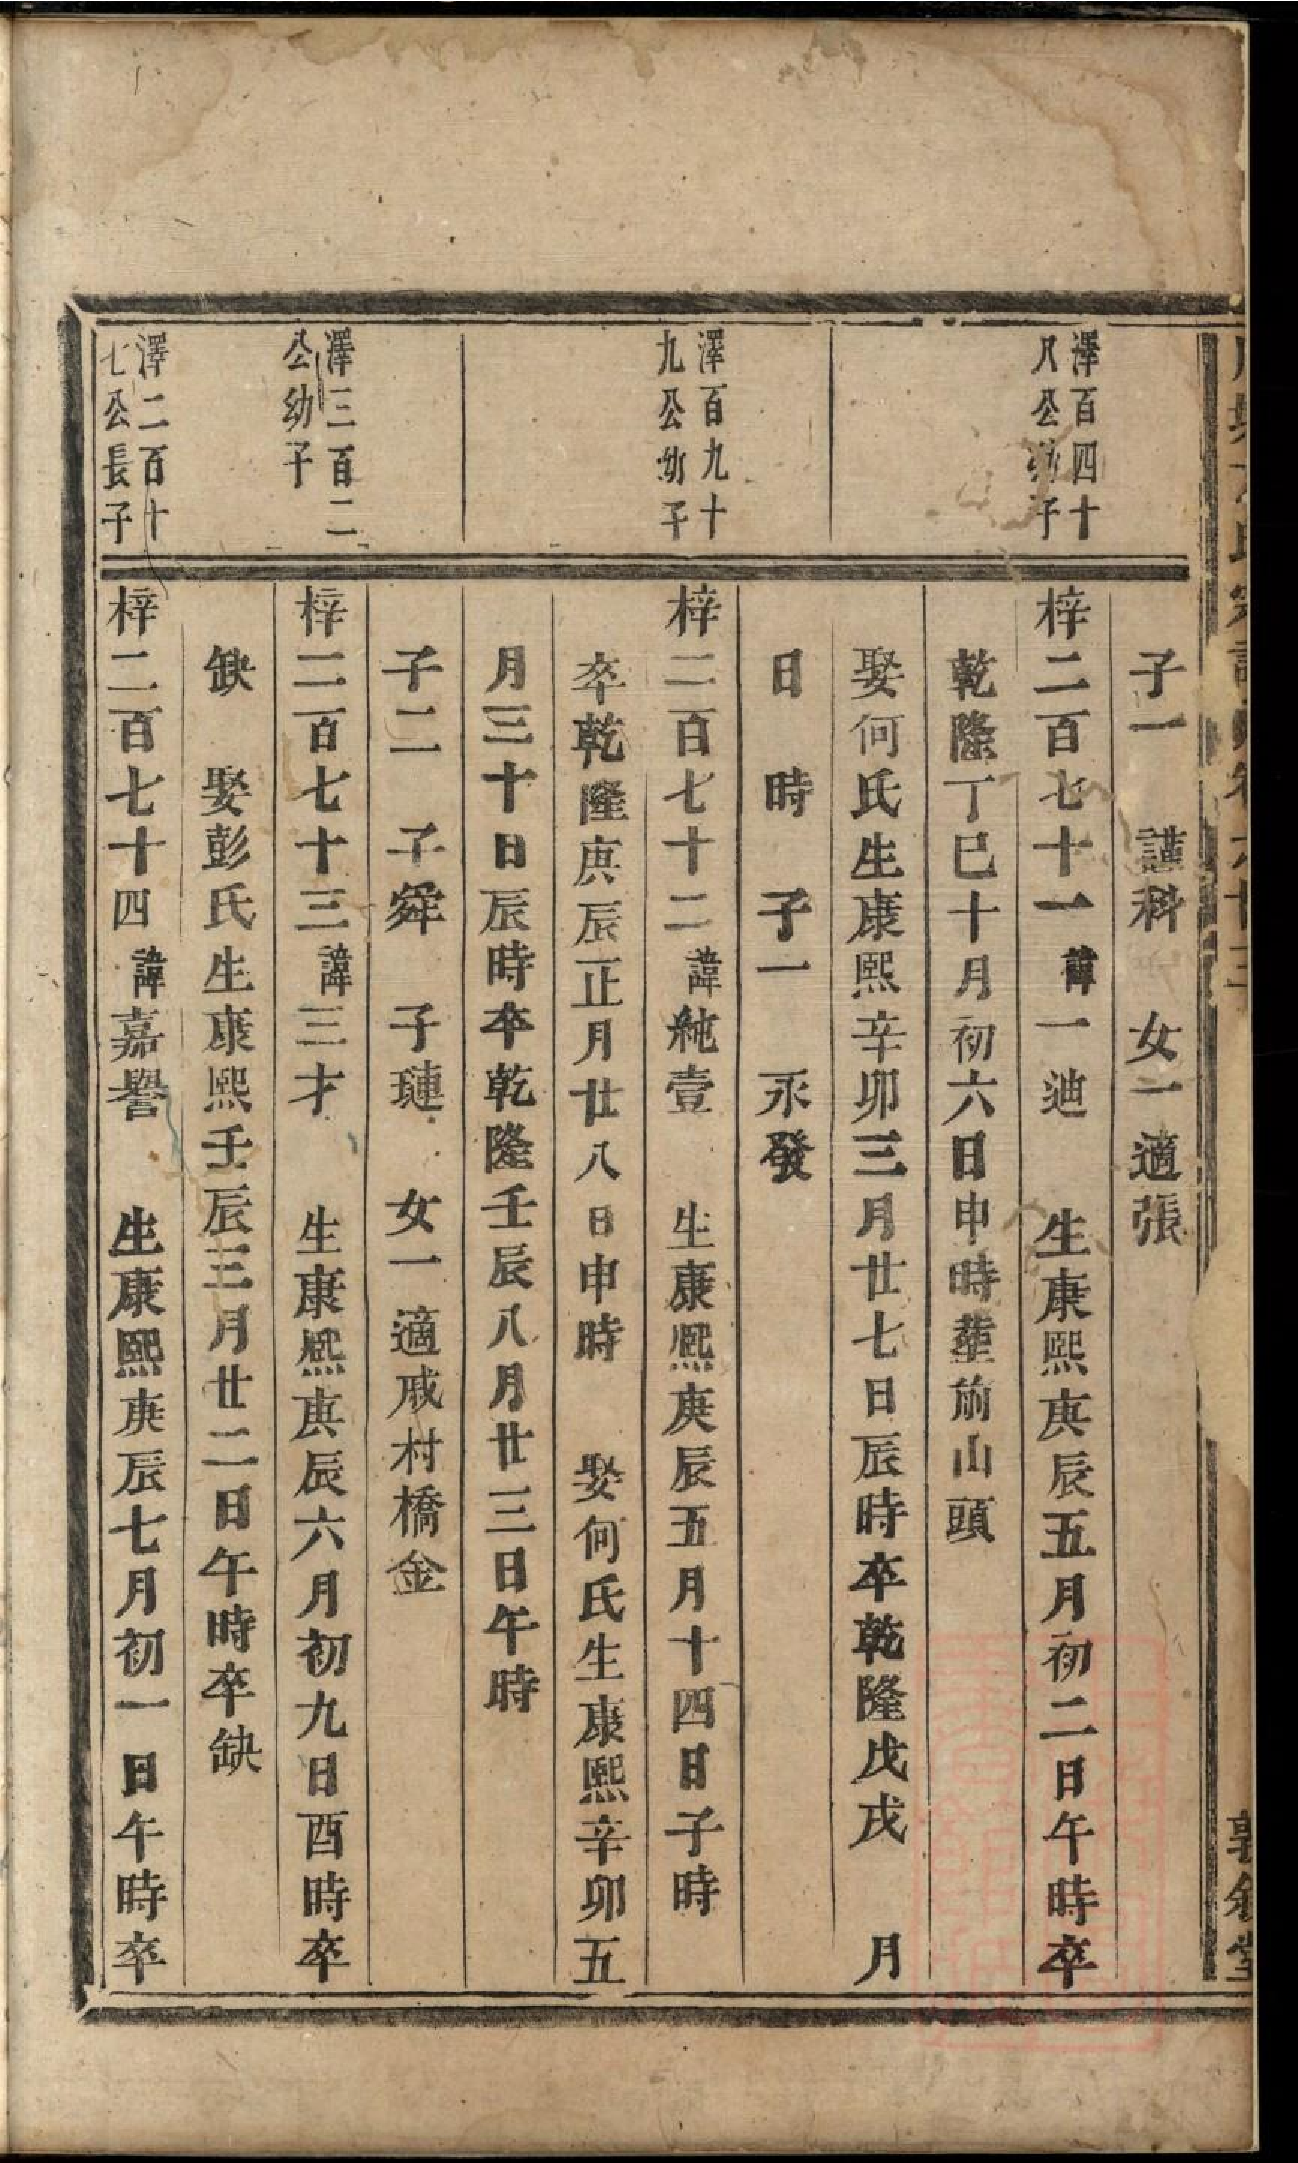 子一 謹科 女一適張
澤百四十
八公幼子
梓二百七十一諱一迪 生康熙庚辰五月初二日午時卒
乾隆丁巳十月初六日申時塟前山頭
娶何氏生康熙辛卯三月廿七日辰時卒乾隆戊戌 月
日 時 子一 永發
澤百九十
九公幼子
梓二百七十二諱純壹 生康熙庚辰五月十四日子時
卒乾隆庚辰正月廿八日申時 娶何氏生康熙辛卯五
月三十日辰時卒乾隆壬辰八月廿三日午時
子二 子舜 子璉 女一適戚村橋金
澤三百二
公幼子
梓二百七十三諱三才 生康熙庚辰六月初九日酉時卒
缺 娶彭氏生康熙壬辰三月廿二日午時卒缺
澤二百十
七公長子
梓二百七十四諱嘉譽 生康熙庚辰七月初一日午時卒